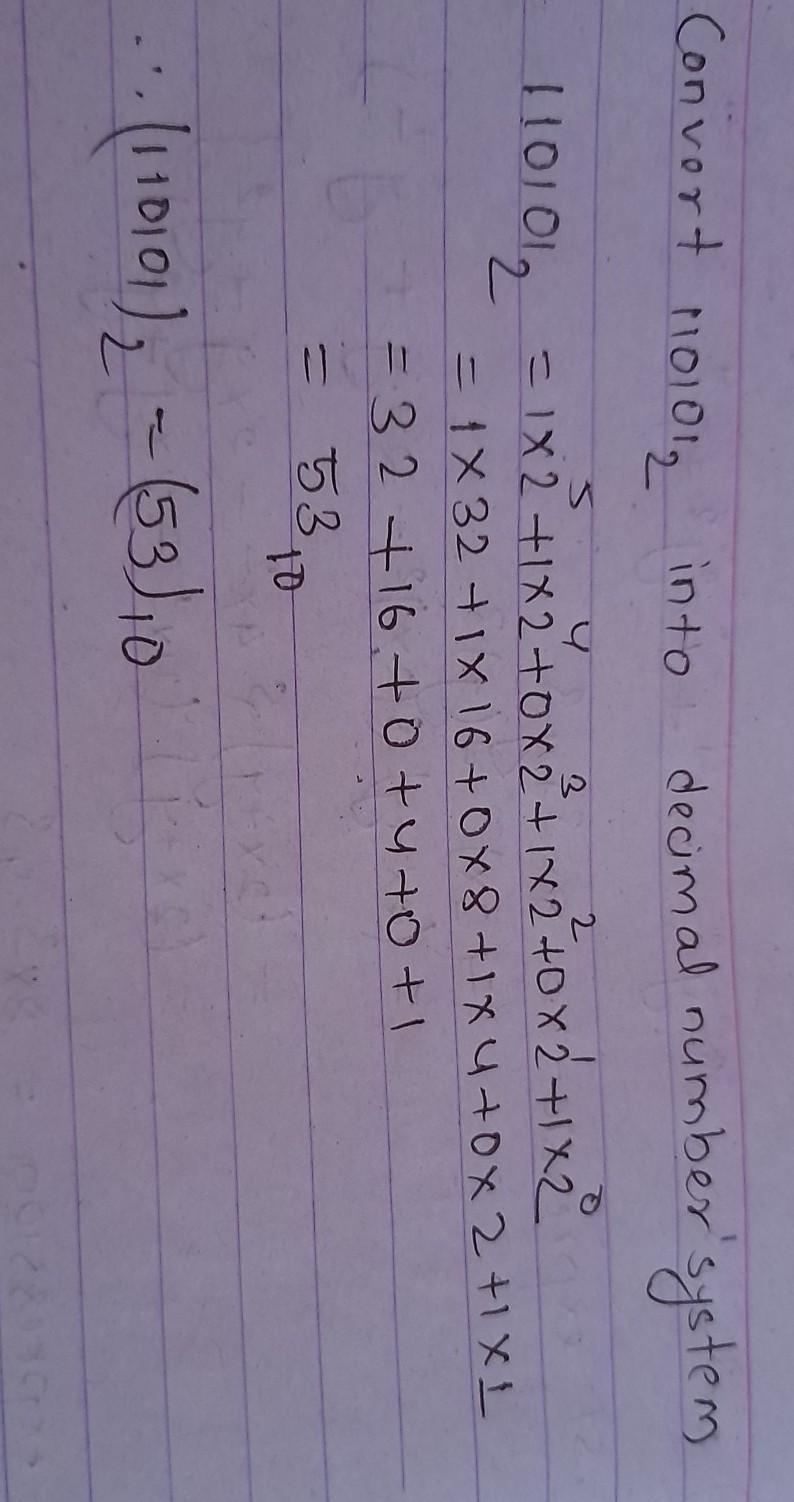 Convert 110101₂ into decimal number system
110101₂ = 1×2⁵+1×2⁴+0×2³+1×2²+0×2¹+1×2⁰
= 1×32+1×16+0×8+1×4+0×2+1×1
= 32+16+0+4+0+1
= 53₁₀
∴ (110101)₂ = (53)₁₀